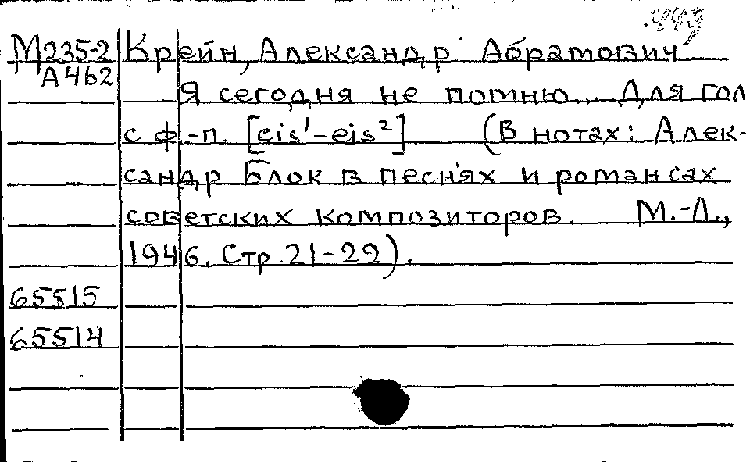 М235-2 Крейн, Александр Абрамович
А462
Я сегодня не помню... Для гол
с ф.-п. [cis¹-eis²] (В нотах: Алек-
сандр Блок в песнях и романсах
советских композиторов. М.-Л.,
1946. Стр. 21-22).
65515
65514